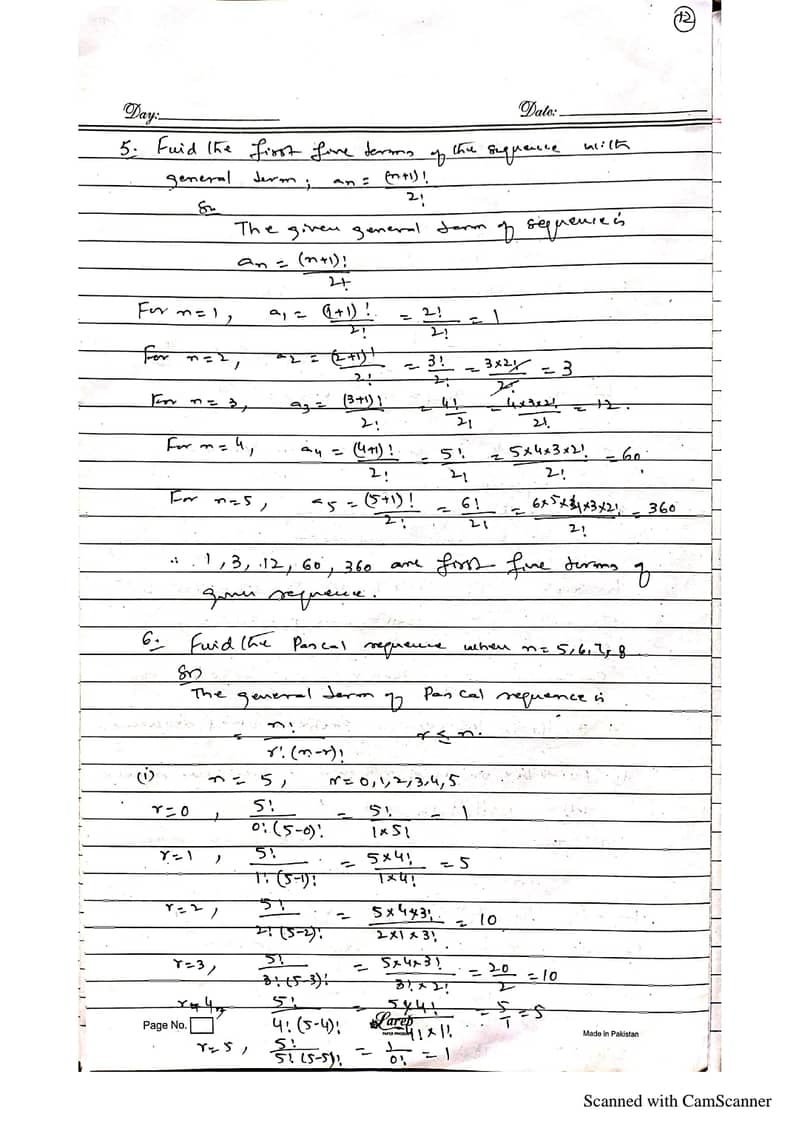 12
Day: Date:
5. Find the first five terms of the sequence with
general term; an = (n+1)! / 2!
Sn
The given general term of sequence is
an = (n+1)! / 2!
For n=1, a1 = (1+1)! / 2! = 2! / 2! = 1
For n=2, a2 = (2+1)! / 2! = 3! / 2! = 3×2! / 2! = 3
For n=3, a3 = (3+1)! / 2! = 4! / 2! = 4×3×2! / 2! = 12.
For n=4, a4 = (4+1)! / 2! = 5! / 2! = 5×4×3×2! / 2! = 60
For n=5, a5 = (5+1)! / 2! = 6! / 2! = 6×5×4×3×2! / 2! = 360
∴ 1, 3, 12, 60, 360 are first five terms of
given sequence.
6. Find the Pascal sequence when n=5,6,7,8
Sn
The general term of Pascal sequence is
= n! / r!(n-r)! r ≤ n.
(i) n = 5, r=0,1,2,3,4,5
r=0, 5! / 0!(5-0)! = 5! / 1×5! = 1
r=1, 5! / 1!(5-1)! = 5×4! / 1×4! = 5
r=2, 5! / 2!(5-2)! = 5×4×3! / 2×1×3! = 10
r=3, 5! / 3!(5-3)! = 5×4×3! / 3!×2! = 20 / 2 = 10
r=4, 5! / 4!(5-4)! = 5×4! / 4!×1! = 5 / 1 = 5
Page No. Larep Made in Pakistan
r=5, 5! / 5!(5-5)! = 1 / 0! = 1
Scanned with CamScanner